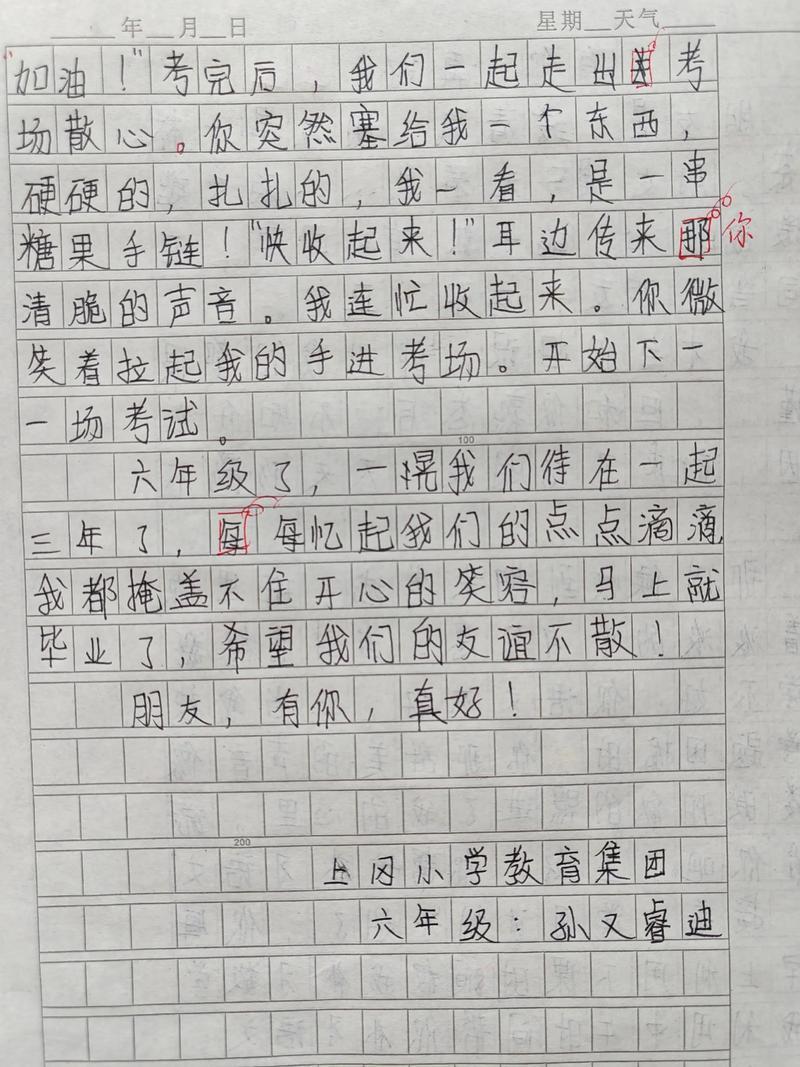 年 月 日 星期 天气
"加油！"考完后，我们一起走出考
场散心。你突然塞给我一个东西，
硬硬的，扎扎的，我一看，是一串
糖果手链！"快收起来！"耳边传来那你
清脆的声音。我连忙收起来。你微
笑着拉起我的手进考场。开始下一
一场考试。
100
六年级了，一晃我们待在一起
三年了，每每忆起我们的点点滴滴
我都掩盖不住开心的笑容，马上就
毕业了，希望我们的友谊不散！
朋友，有你，真好！
200
上冈小学教育集团
六年级：孙又睿迪